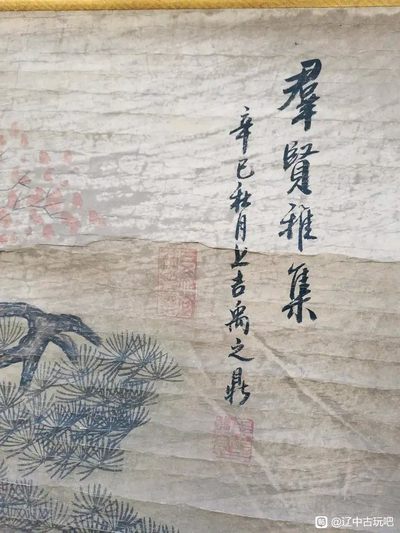 羣賢雅集
辛巳秋月上吉禹之鼎
@辽中古玩吧